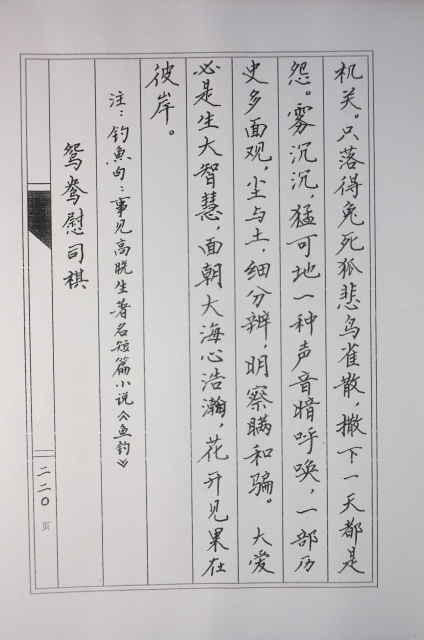 机关。只落得兔死狐悲鸟雀散，撒下一天都是
怨。雾沉沉，猛可地一种声音暗呼唤，一部历
史多面观，尘与土，细分辨，明察瞒和骗。大爱
必是生大智慧，面朝大海心浩瀚，花开见果在
彼岸。
注：钓鱼句：事见高晓生著名短篇小说《鱼钓》
鸳鸯慰司祺
二二〇页